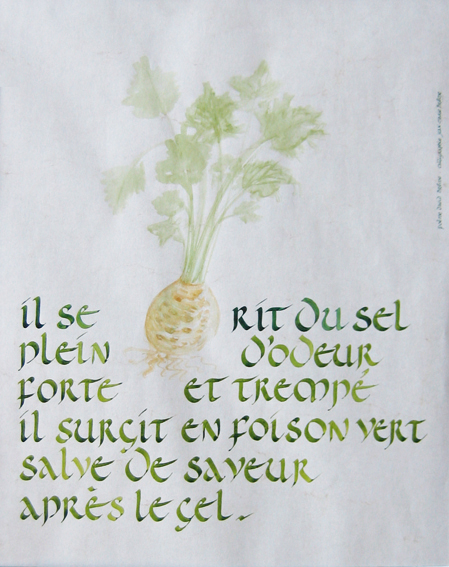 il se rit du sel
plein d'odeur
forte et trempé
il surgit en foison vert
salve de saveur
après le gel.